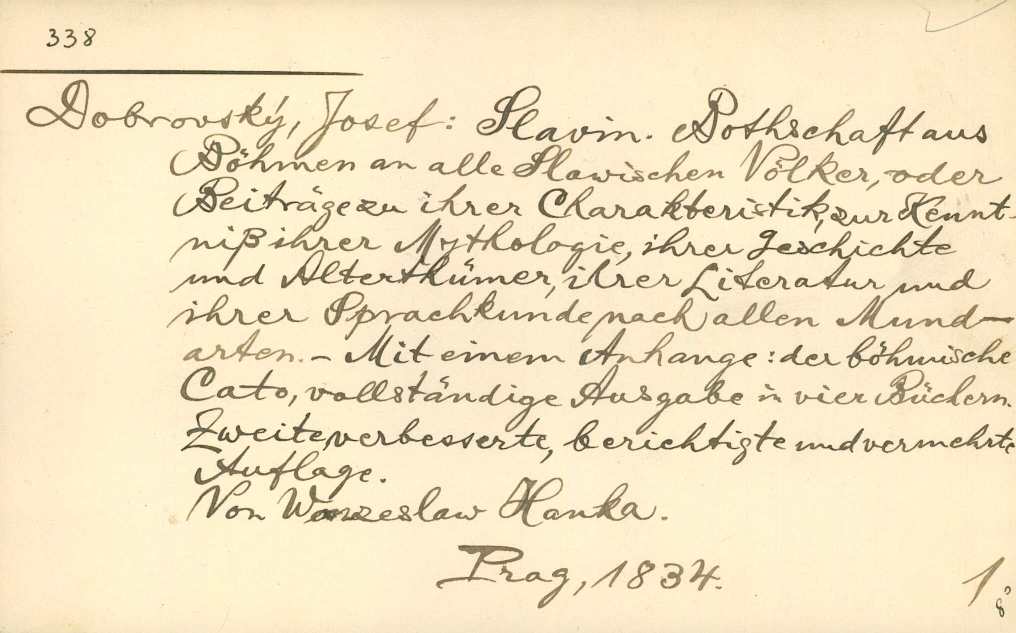 338
Dobrovský, Josef: Slavin. Bothschaft aus
Böhmen an alle Slawischen Völker, oder
Beiträge zu ihrer Charakteristik, zur Kennt-
niß ihrer Mythologie, ihrer Geschichte
und Alterthümer, ihrer Literatur und
ihrer Sprachkunde nach allen Mund-
arten. - Mit einem Anhange: der böhmische
Cato, vollständige Ausgabe in vier Büchern.
Zweite, verbesserte, berichtigte und vermehrte
Auflage.
Von Wenzeslaw Hanka.
Prag, 1834.
1
8°